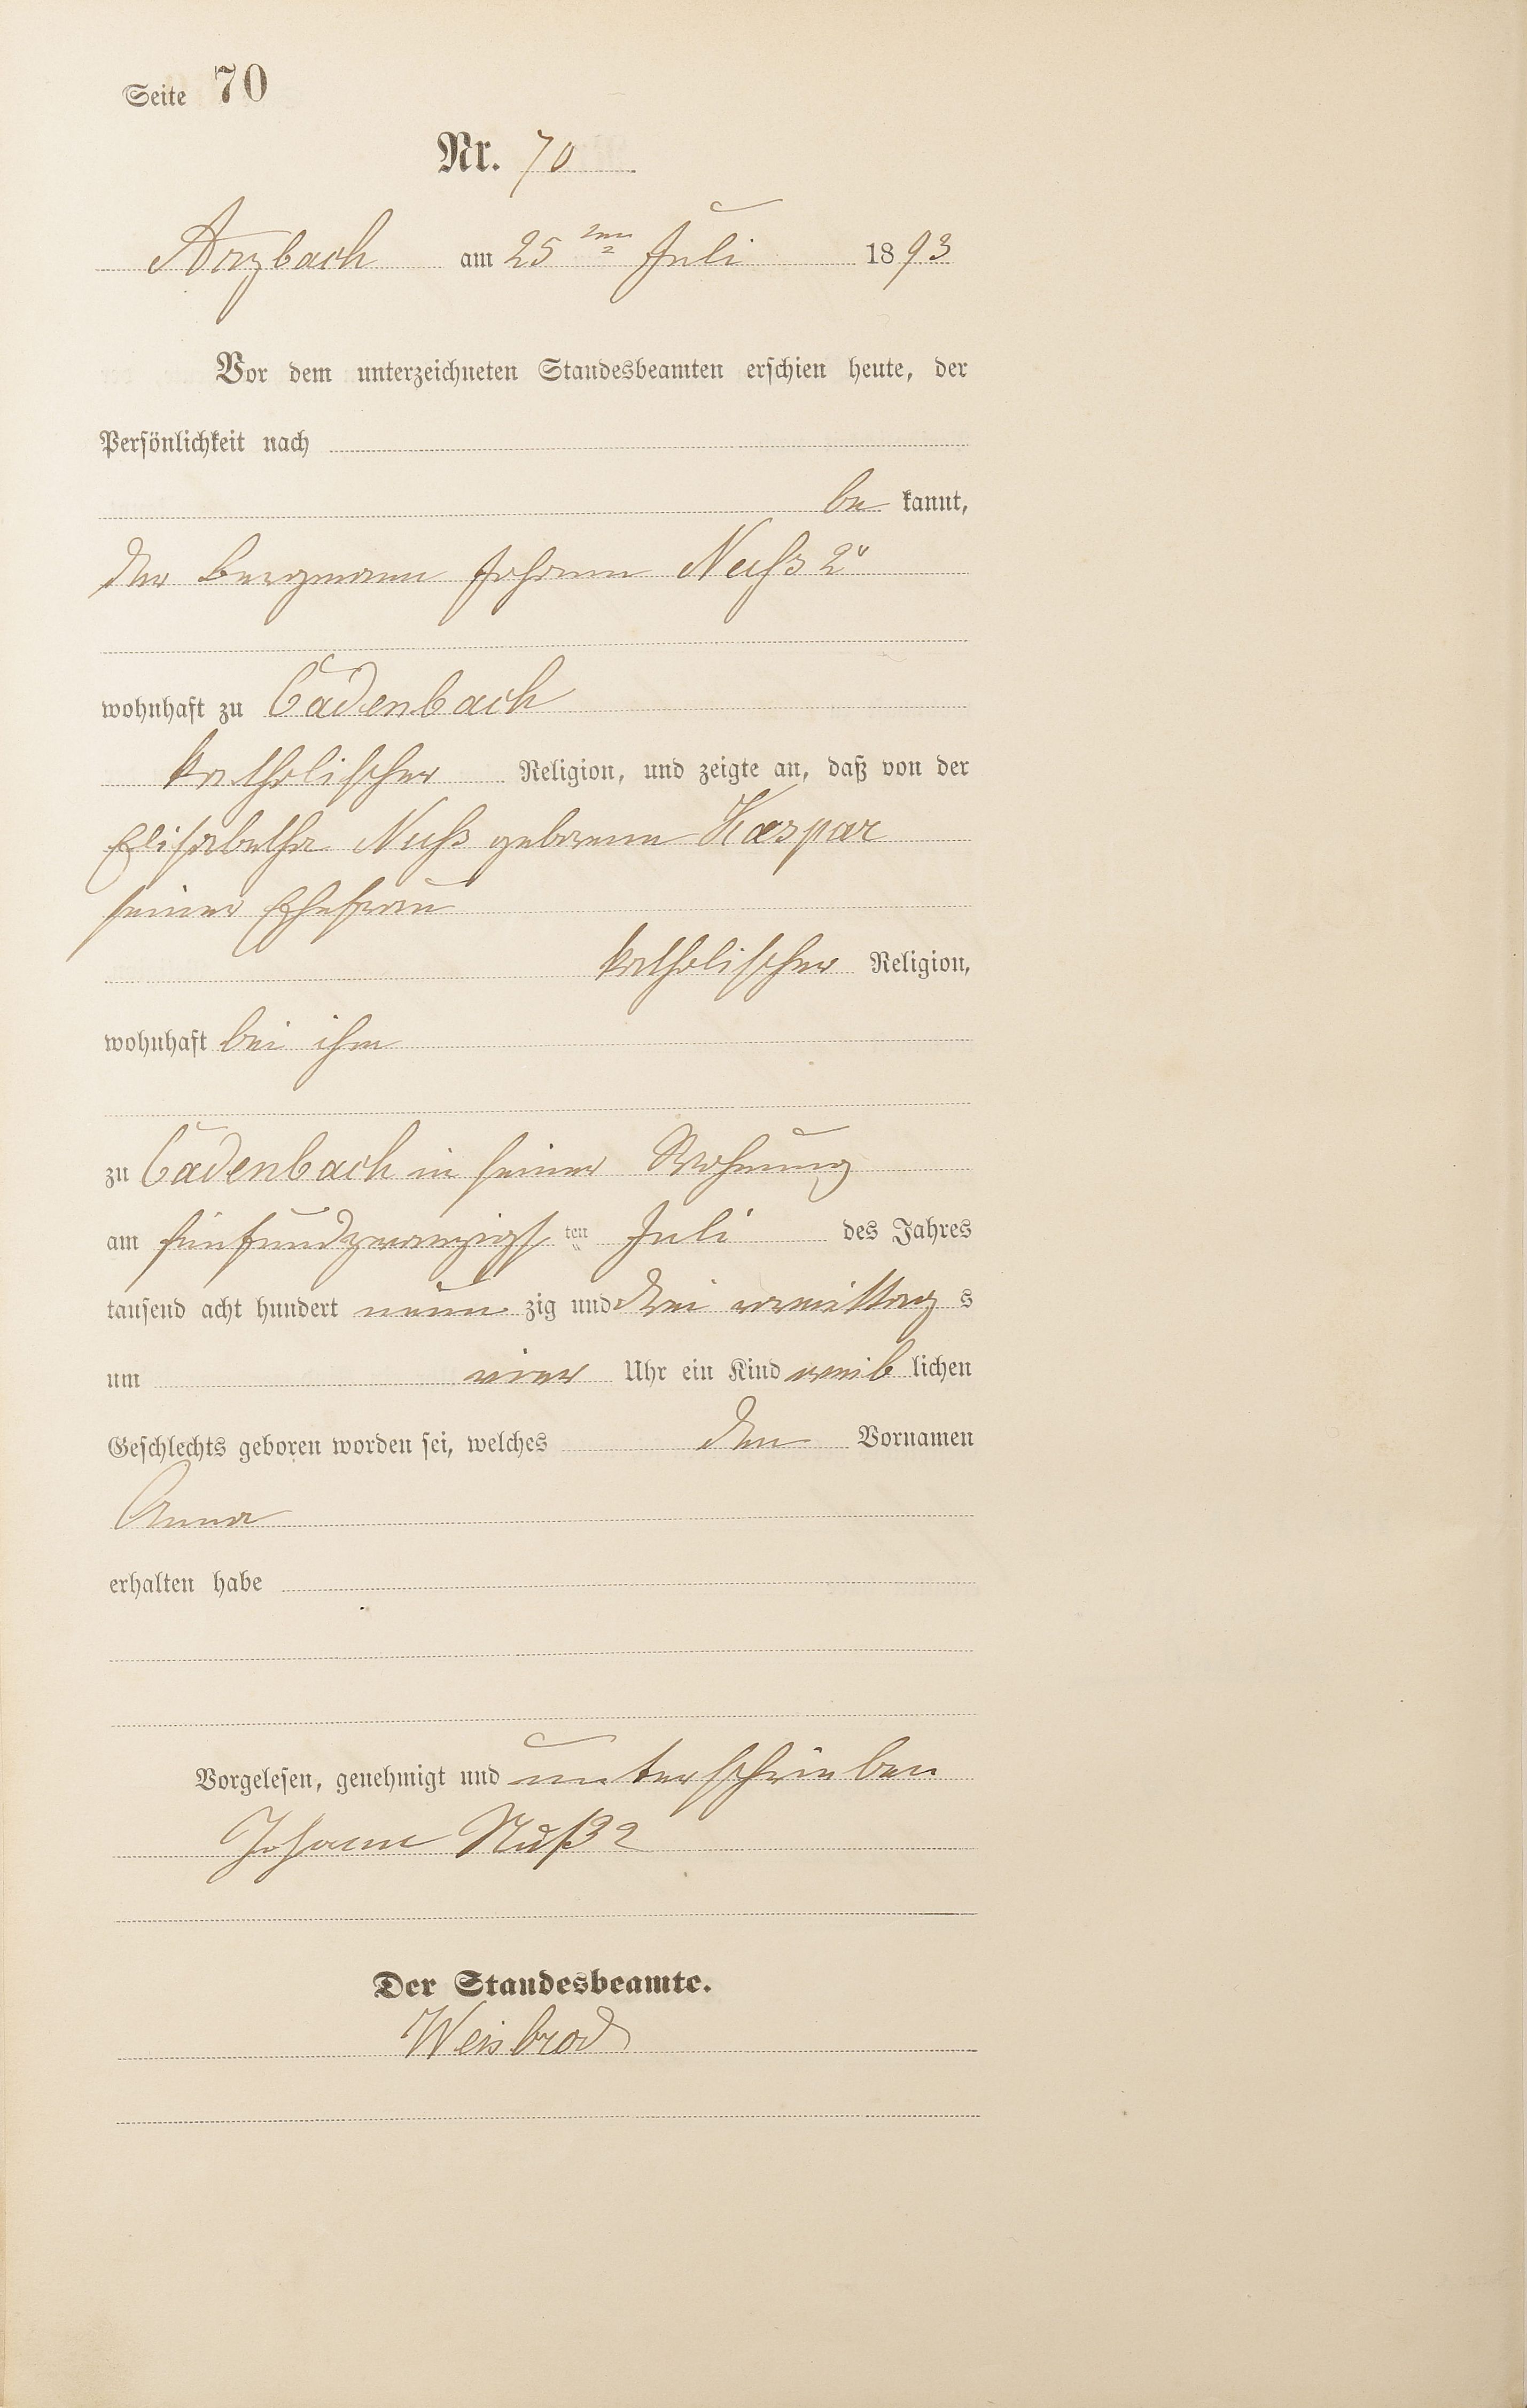 Seite 70
Nr. 70
Arzbach am 25 ten Juli 1893
Vor dem unterzeichneten Standesbeamten erschien heute, der
Persönlichkeit nach
be kannt,
der Bergmann Johann Nuß 2r
wohnhaft zu Cadenbach
katholischer Religion, und zeigte an, daß von der
Elisabetha Nuß geborene Kaspar
seiner Ehefrau
katholischer Religion,
wohnhaft bei ihm
zu Cadenbach in seiner Wohnung
am fünfundzwanzigs ten Juli des Jahres
tausend acht hundert neun zig und drei vormittag s
um vier Uhr ein Kind weib lichen
Geschlechts geboren worden sei, welches den Vornamen
Anna
erhalten habe
Vorgelesen, genehmigt und unterschrieben
Johann Nuß 2
Der Standesbeamte.
Weisbrod